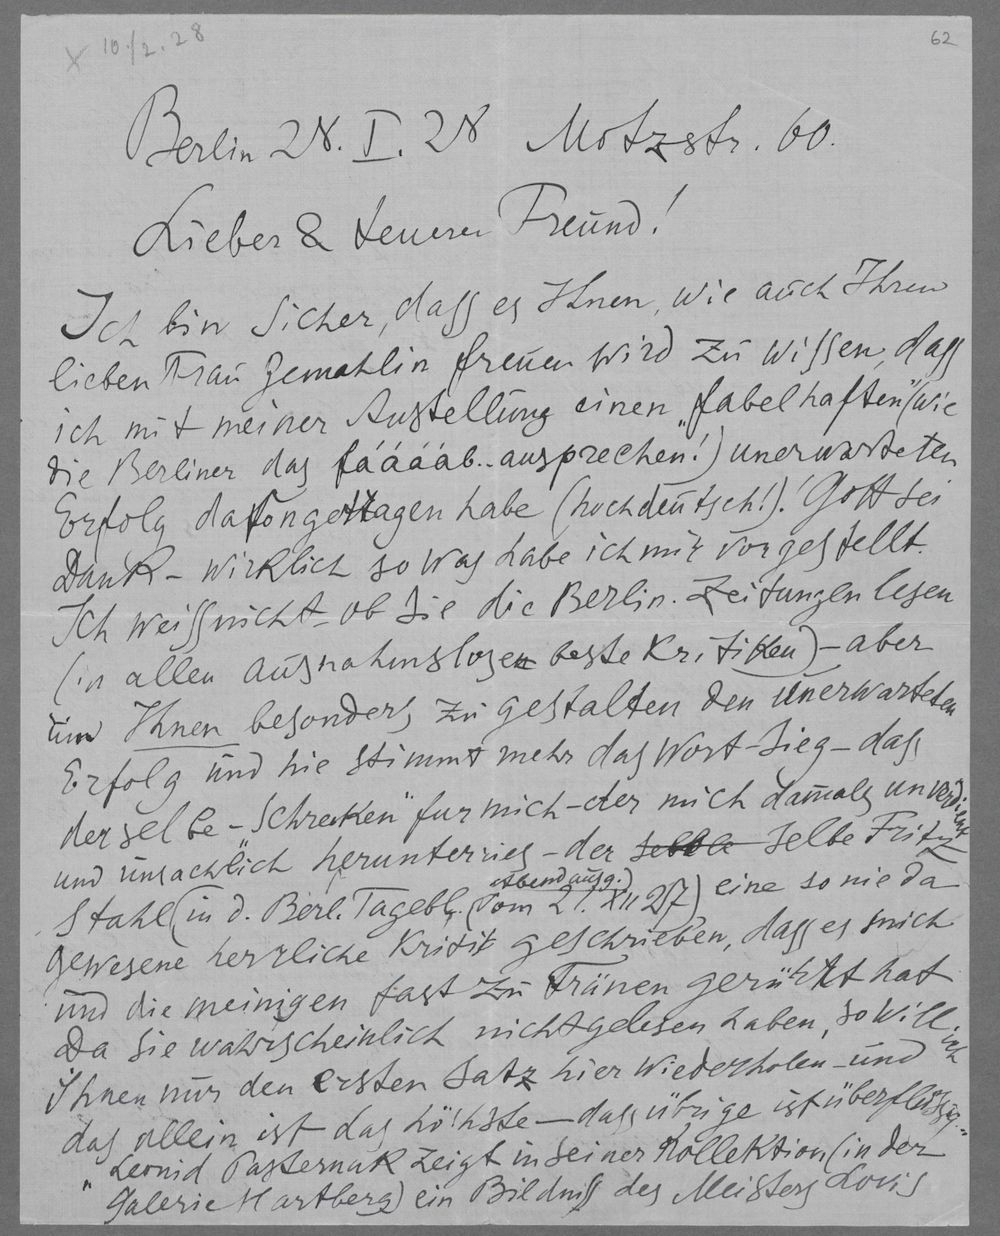 x 10./2. 28
62
Berlin 28. I. 28 Motzstr. 60.
Lieber & teuerer Freund!
Ich bin sicher, dass es Ihnen, wie auch Ihrer
lieben Frau Gemahlin freuen wird zu wissen, dass
ich mit meiner Austellung einen „fabelhaften" (wie
die Berliner das fáááab.. aussprechen!) unerwarteten
Erfolg davongetragen habe (hochdeutsch!). Gott sei
Dank – wirklich so was habe ich mir vorgestellt.
Ich weiss nicht – ob Sie die Berlin. Zeitungen lesen
(in allen ausnahmslosen beste Kritiken) – aber
um Ihnen besonders zu gestalten den unerwarteten
Erfolg und hie stimmt mehr das Wort – Sieg – dass
derselbe – „Schrecken" fur mich – der mich damals unverdient
und unsachlich herunterries – der selbe Fritz
Stahl (in d. Berl. Tagebl. (vom 21. XII 27) eine so nie da
Abendausg.)
gewesene herrliche Kritik geschrieben, dass es mich
und die meinigen fast zu Tränen gerührt hat
Da Sie wahrscheinlich nicht gelesen haben, so will ich
Ihnen nur den ersten Satz hier wiederholen – und
das allein ist das höchste – dass übrige ist überflüssig.
„Leonid Pasternak zeigt in seiner Kollektion (in der
Galerie Hartberg) ein Bildniss des Meisters Lovis